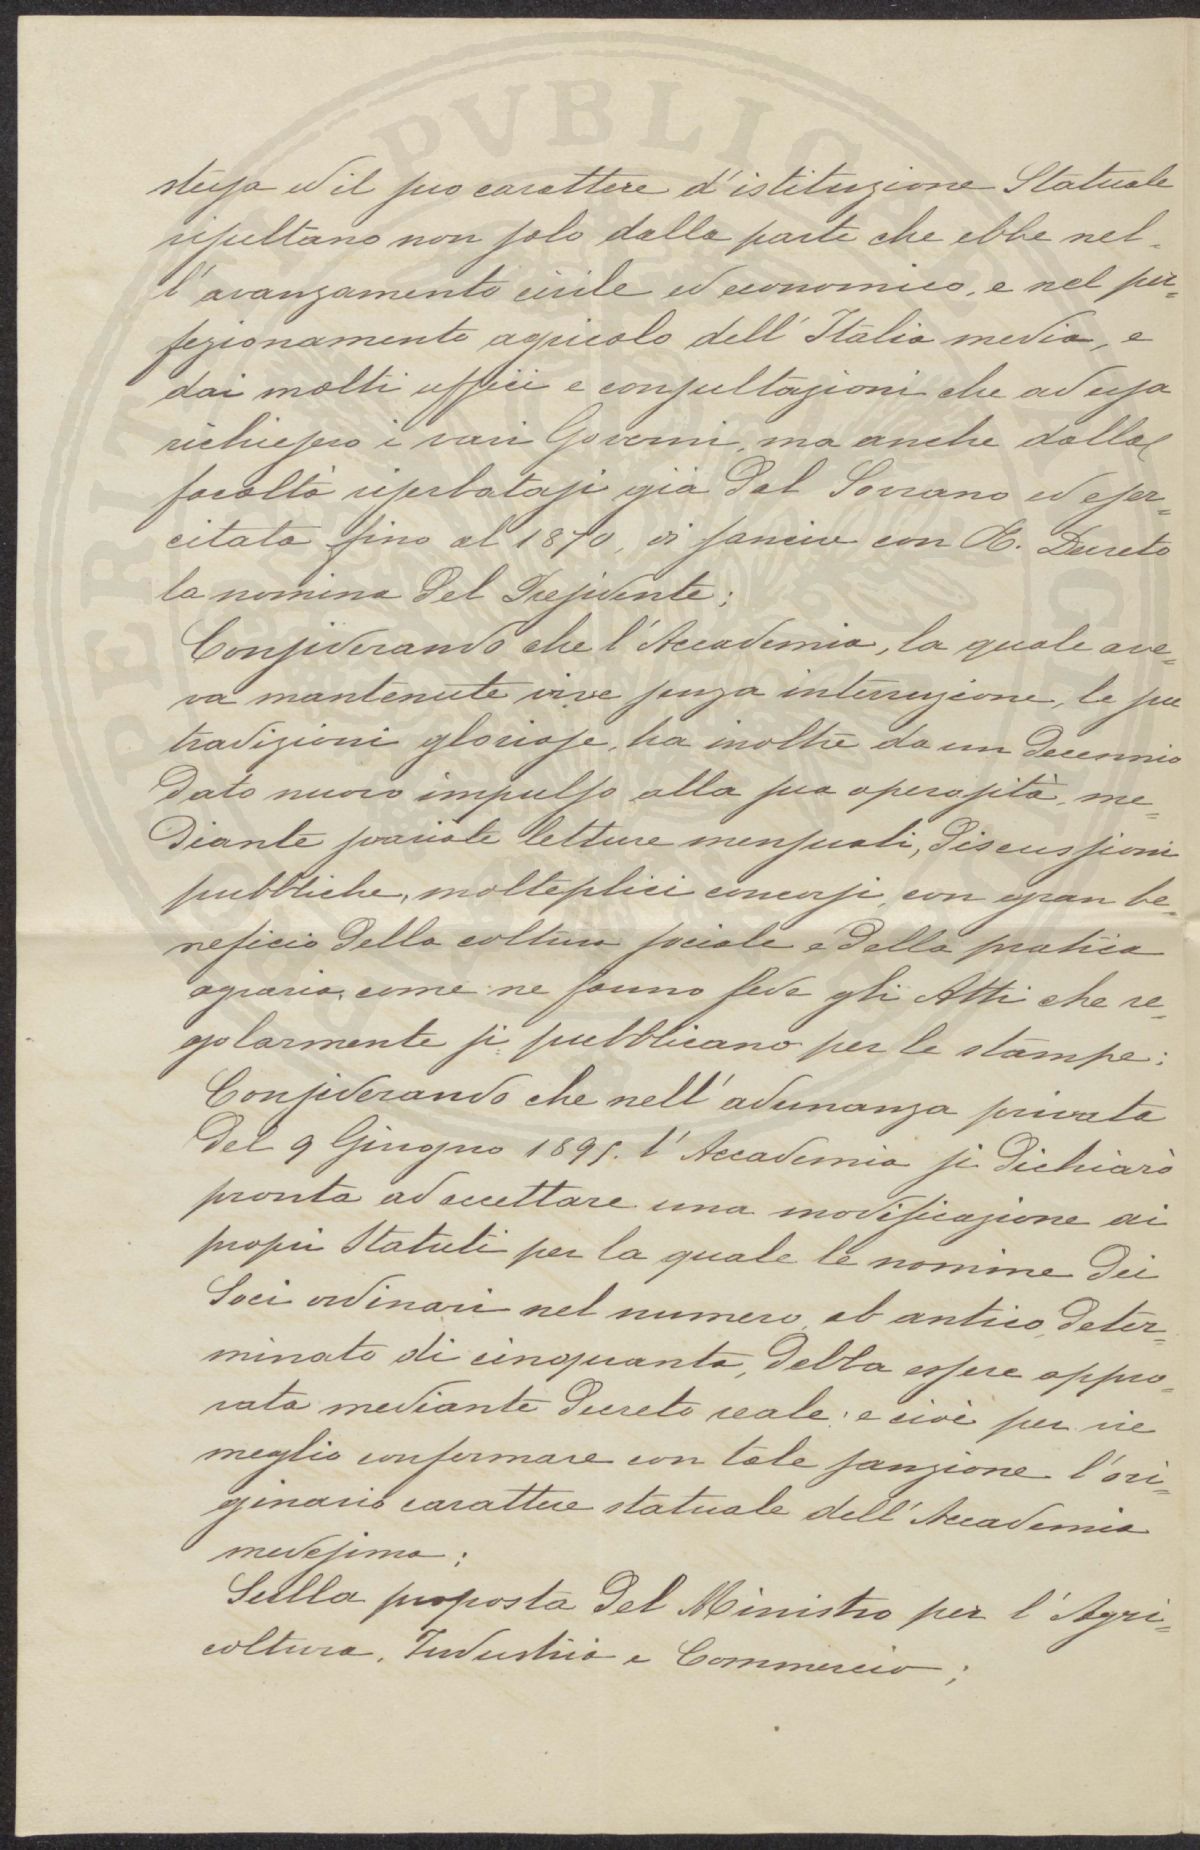 stessa ed il suo carattere d'istituzione Statuale
risultano non solo dalla parte che ebbe nel-
l'avanzamento civile ed economico, e nel per=
fezionamento agricolo dell'Italia media, e
dai molti uffici e consultazioni che ad essa
richiesero i vari Governi, ma anche dalla
facoltà riserbatasi già dal Sovrano ed eser=
citata fino al 1870, di sancire con R. Decreto
la nomina del Presidente;
Considerando che l'Accademia, la quale ave=
va mantenute vive senza interruzione, le sue
tradizioni gloriose, ha inoltre da un decennio
dato nuovo impulso alla sua operosità, me=
diante svariate letture mensuali, discussioni
pubbliche, molteplici concorsi, con gran be=
neficio della coltura sociale e della pratica
agraria, come ne fanno fede gli Atti che re=
golarmente si pubblicano per le stampe:
Considerando che nell'adunanza privata
del 9 Giugno 1895. l'Accademia si dichiarò
pronta ad accettare una modificazione ai
propri Statuti per la quale le nomine dei
Soci ordinari nel numero, ab antico, deter=
minato di cinquanta, debba essere appro=
vata mediante decreto reale: e ciò per vie
meglio confermare con tale sanzione l'ori=
ginario carattere statuale dell'Accademia
medesima;
Sulla proposta del Ministro per l'Agri=
coltura, Industria e Commercio;